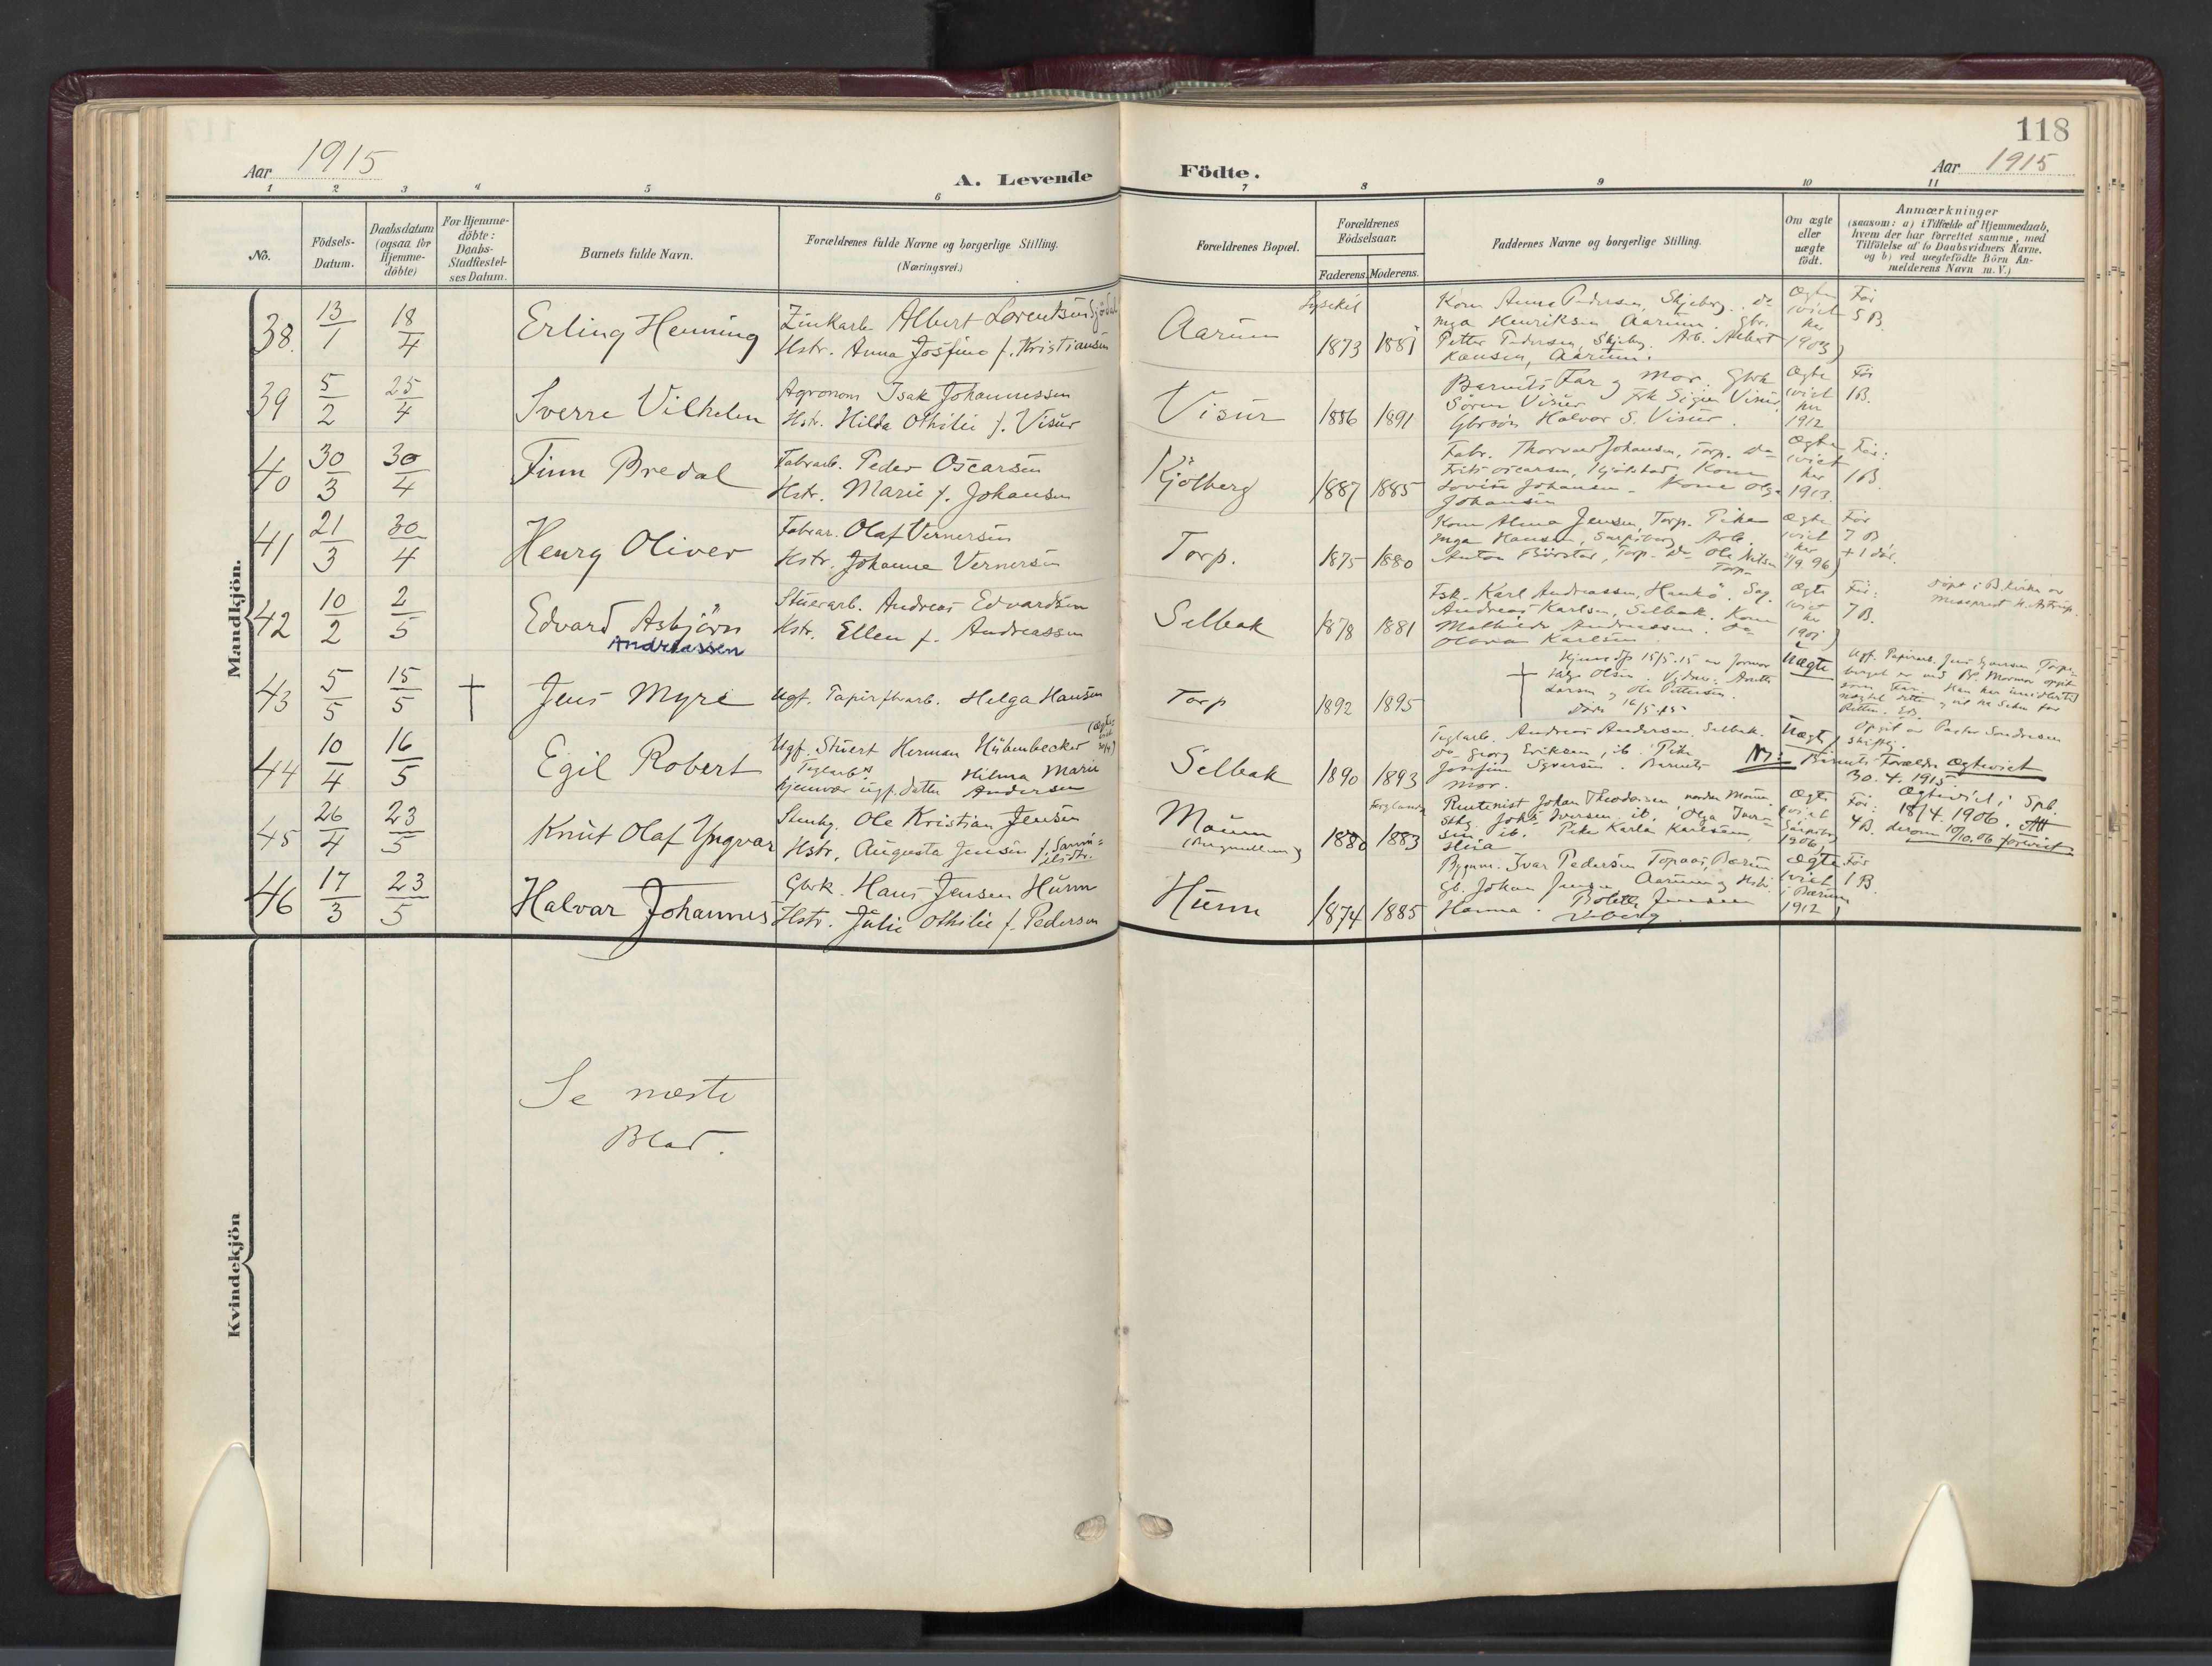 118
Aar 1915
A. Levende Födte.
Aar 1915
1 2 3 4 5 6 7 8 9 10 11
No.
Födsels-
Datum.
Daabsdatum
(ogsaa for
Hjemme-
döbte)
For Hjemme-
döbte:
Daabs-
Stadfæstel-
ses Datum.
Barnets fulde Navn.
Forældrenes fulde Navne og borgerlige Stilling.
(Næringsvei.)
Forældrenes Bopæl.
Forældrenes
Födselsaar.
Faderens. Moderens.
Faddernes Navne og borgerlige Stilling.
Om ægte
eller
uægte
födt.
Anmærkninger
(saasom: a) i Tilfælde af Hjemmedaab,
hvem der har forrettet samme, med
Tilföielse af to Daabsvidners Navne.
og b) ved uægtefödte Börn An-
melderens Navn m. V.)
Mandkjön.
38. 13/1 18/4 Erling Henning
Zinkarb. Albert Lorentsen
Hstr. Anna Josfine f. Kristiansen
Aarum
Lysekil
1873 1881
Kone Anna Pedersen, Skjeberg. do
Inga Henriksen Aarum. Gbr.
Petter Pedersen, Skjeberg. Arb. Albert
Hansen, Aarum.
Ægte
(viet
her
1903)
Før
5 B.
39 5/2 25/4 Sverre Vilhelm
Agronom Isak Johannessen
Hstr. Hilda Othilie f. Visur
Visur
1886 1891
Barnets Far og Mor. Gbrk
Sören Visur Frk Signe Visur,
Gbrsön Halvor S. Visur.
Ægte
(viet
her
1912
Før
1 B.
40 30/3 30/4 Finn Bredal
Fabrarb. Peder Oscarsen
Hstr. Marie f. Johansen
Kjölberg
1887 1885
Fabr. Thorvald Johansen, Torp. do
Frits Oscarsen, Kjölstad, Kone
Lovise Johansen. Kone Olga
Johansen
Ægte
(viet
her
1913.
Før:
1 B.
41 21/3 30/4 Henry Oliver
Fabrar. Olaf Vernersen
Hstr. Johanne Vernersen
Torp.
1875 1880
Kone Alma Jensen, Torp. Pike
Inga Hansen, Sarpsborg Arb.
Anton Börstad, Torp. do Ole Nilsen
Torp
Ægte
(viet
her
Før
7 B
+ 1 död.
42 10/2 2/5 Edvard Asbjörn
Andreassen
Stuerarb. Andreas Edvardsen
Hstr. Ellen f. Andreassen
Selbak
1878 1881
Fsk. Karl Andreassen, Hankø. Sag.
Andreas Karlsen, Selbak. Kone
Mathilde Andreassen. do
Olava Karlsen
Ægte
(viet
her
Før:
7 B.
Döpt i B. kirke av
Misprest N. Astrup.
43 5/5 15/5 † Jens Myre
Ugf. Papirfbarb. Helga Hansen
Torp
1892 1895
† Hjemmedp 15/5.15 av Jormor
Olsen. Vidner: Anette
Larsen og Ole Pettersen.
Död 16/5.15
Uægte
44 10/4 16/5 Egil Robert
Ugf. Stuert Herman Hübenbecker
Teglarbs
hjemvær. ugf. datter Hilma Marie
Andersen
Selbak
1890 1893
Teglarb. Andreas Andersen, Selbak.
do Georg Eriksen, ib. Pike
Josefine Syversen. Barnets
Mor.
Uægte
Opgit av Pastor Sandresen
skriftlig.
NB: Barnets Forældre Ægteviet
30.4.1915
45 26/4 23/5 Knut Olaf Yngvar
Stenhg. Ole Kristian Jensen
Hstr. Augusta Jensen
Moum
Torgland
1880 1883
Rentenist Johan Theodorsen, nordre Moum.
Sthg. Johs Iversen ib. Olga Iver-
sen, ib. Pike Karla Karlsen,
Ægte
(viet
Sarpsborg
1906)
Før:
4 B.
Ægteviet i Spb.
18/4.1906. Att
derom 10/10.06 forevist
46 17/3 23/5 Halvar Johannes
Gbrk. Hans Jensen Hunn
Hstr. Julie Othilie f. Pedersen
Hunn
1874 1885
Bygnm. Ivar Pedersen Topaas, Bærum
Gb. Johan Jensen Aarum og Hstr.
Hanna. Bolette Jensen
Viberg.
Ægte
(viet
i Bærum
1912)
Før
1 B.
Se næste
Blad.
Kvindekjön